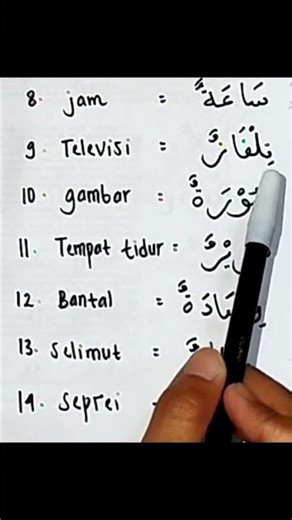 8. jam = سَاعَةٌ
9. Televisi = تِلْفَازٌ
10. gambar =
11. Tempat tidur =
12. Bantal =
13. Selimut =
14. Seprei